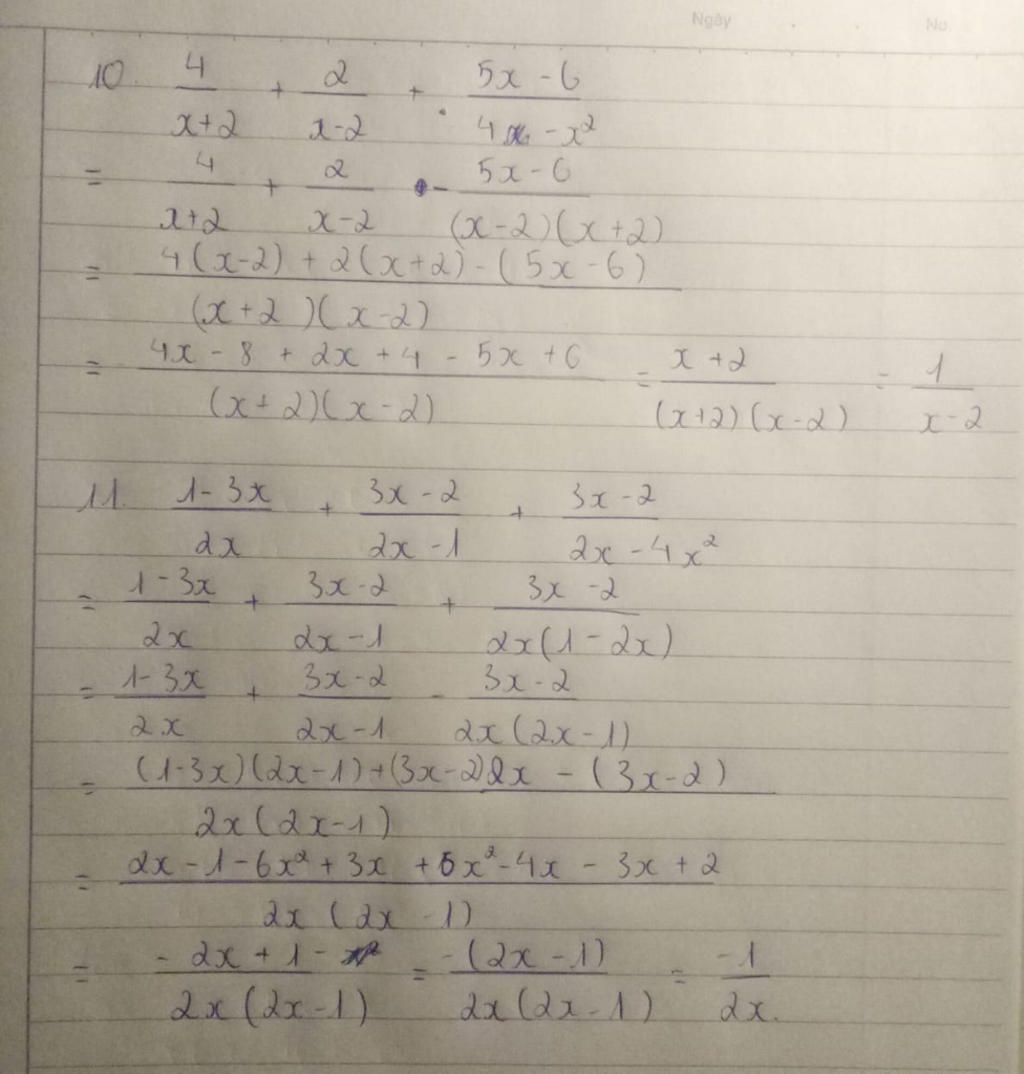 Ngày . . No.
10. 4/(x+2) + 2/(x-2) + (5x-6)/(4-x²)
= 4/(x+2) + 2/(x-2) - (5x-6)/((x-2)(x+2))
= (4(x-2) + 2(x+2) - (5x-6))/((x+2)(x-2))
= (4x - 8 + 2x + 4 - 5x + 6)/((x+2)(x-2)) = (x+2)/((x+2)(x-2)) = 1/(x-2)
11. (1-3x)/(2x) + (3x-2)/(2x-1) + (3x-2)/(2x-4x²)
= (1-3x)/(2x) + (3x-2)/(2x-1) + (3x-2)/(2x(1-2x))
= (1-3x)/(2x) + (3x-2)/(2x-1) - (3x-2)/(2x(2x-1))
= ((1-3x)(2x-1)+(3x-2)2x - (3x-2))/(2x(2x-1))
= (2x-1-6x²+3x+6x²-4x-3x+2)/(2x(2x-1))
= (-2x+1)/(2x(2x-1)) = -(2x-1)/(2x(2x-1)) = -1/(2x).